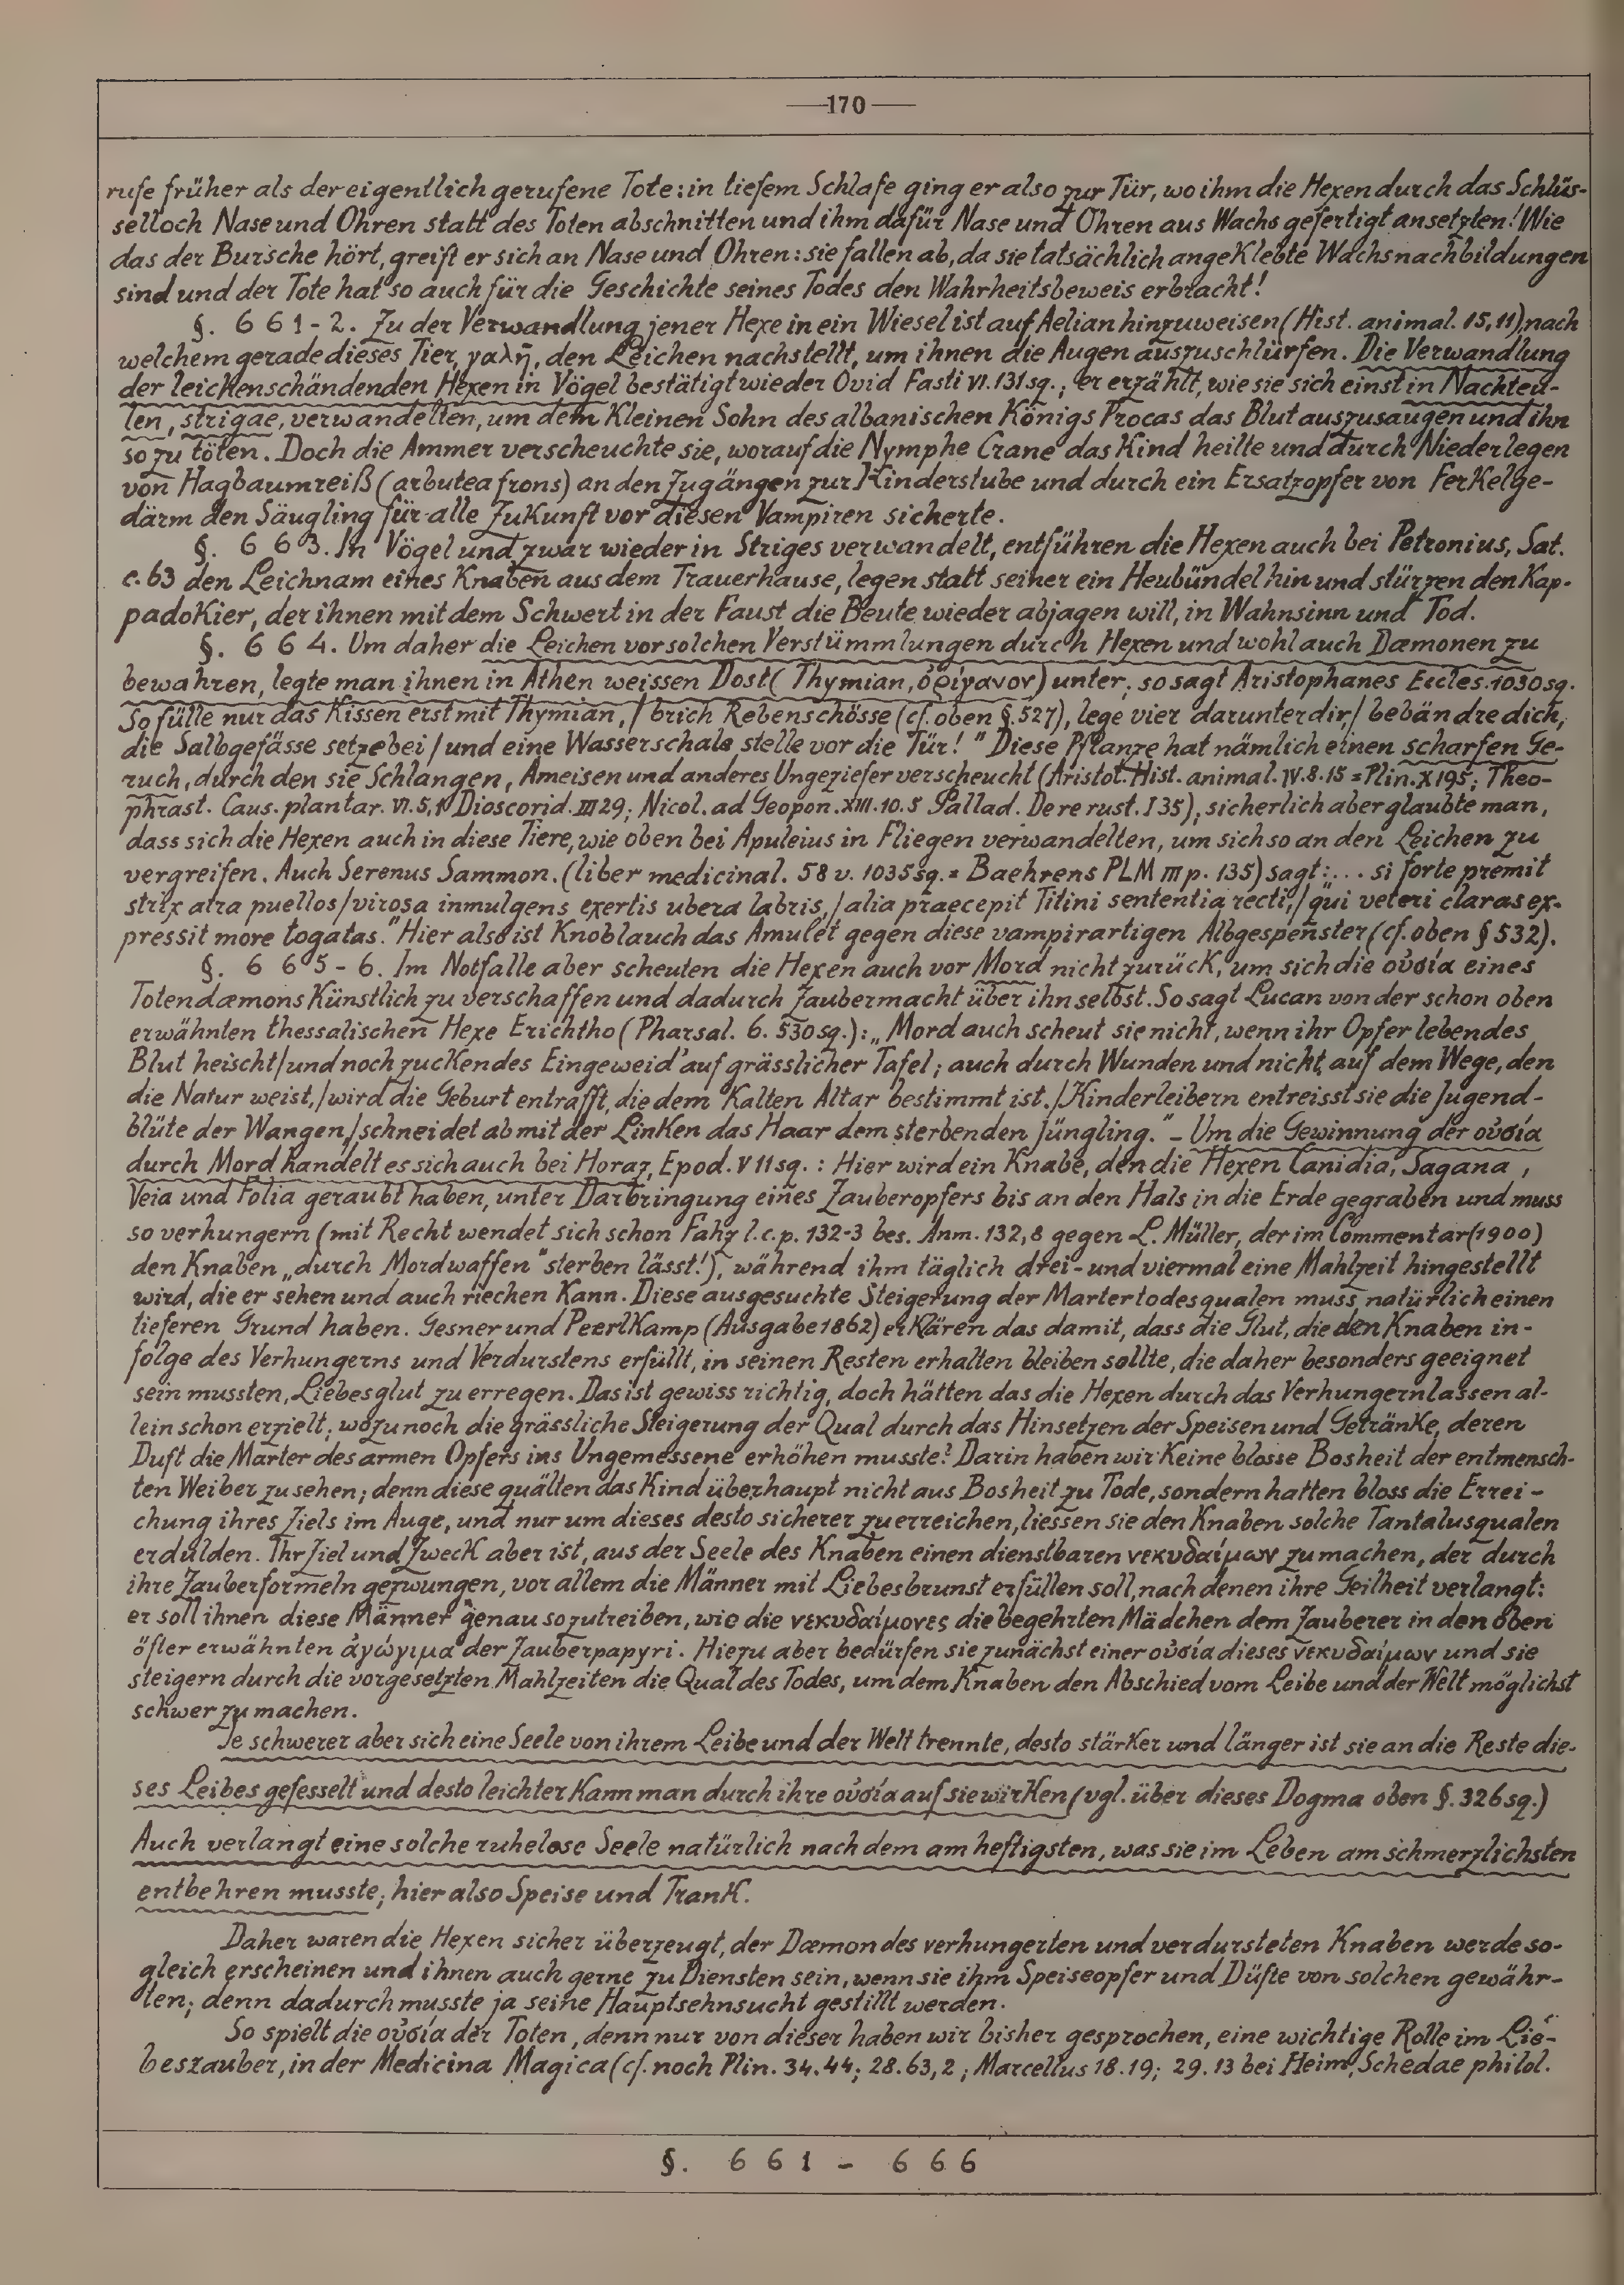 —170—
rufe früher als der eigentlich gerufene Tote: in tiefem Schlafe ging er also zur Tür, wo ihm die Hexen durch das Schlüs-
selloch Nase und Ohren statt des Toten abschnitten und ihm dafür Nase und Ohren aus Wachs gefertigt ansetzten! Wie
das der Bursche hört, greift er sich an Nase und Ohren: sie fallen ab, da sie tatsächlich angeklebte Wachsnachbildungen
sind und der Tote hat so auch für die Geschichte seines Todes den Wahrheitsbeweis erbracht!
§. 661-2. Zu der Verwandlung jener Hexe in ein Wiesel ist auf Aelian hinzuweisen (Hist. animal. 15,11), nach
welchem gerade dieses Tier, γαλῆ, den Leichen nachstellt, um ihnen die Augen auszuschlürfen. Die Verwandlung
der leichenschändenden Hexen in Vögel bestätigt wieder Ovid Fasti VI. 131 sq.; er erzählt, wie sie sich einst in Nachteu-
len, strigae, verwandelten, um dem kleinen Sohn des albanischen Königs Procas das Blut auszusaugen und ihn
so zu töten. Doch die Ammer verscheuchte sie, worauf die Nymphe Crane das Kind heilte und durch Niederlegen
von Hagbaumreiß (arbutea frons) an den Zugängen zur Kinderstube und durch ein Ersatzopfer von Ferkelge-
därm den Säugling für alle Zukunft vor diesen Vampiren sicherte.
§. 663. In Vögel und zwar wieder in Striges verwandelt, entführen die Hexen auch bei Petronius, Sat.
c. 63 den Leichnam eines Knaben aus dem Trauerhause, legen statt seiner ein Heubündel hin und stürzen den Kap-
padokier, der ihnen mit dem Schwert in der Faust die Beute wieder abjagen will, in Wahnsinn und Tod.
§. 664. Um daher die Leichen vor solchen Verstümmlungen durch Hexen und wohl auch Dæmonen zu
bewahren, legte man ihnen in Athen weissen Dost (Thymian, ὀρίγανον) unter; so sagt Aristophanes Eccles. 1030 sq.
So fülle nur das Kissen erst mit Thymian, / brich Rebenschösse (cf. oben §. 527), lege vier darunter dir / bebändre dich,
die Salbgefässe setze bei / und eine Wasserschale stelle vor die Tür!" Diese Pflanze hat nämlich einen scharfen Ge-
ruch, durch den sie Schlangen, Ameisen und anderes Ungeziefer verscheucht (Aristot. Hist. animal. IV. 8. 15 = Plin. X 195; Theo-
phrast. Caus. plantar. VI. 5,1 Dioscorid. III 29; Nicol. ad Geopon. XIII. 10. 5 Pallad. De re rust. I 35), sicherlich aber glaubte man,
dass sich die Hexen auch in diese Tiere, wie oben bei Apuleius in Fliegen verwandelten, um sich so an den Leichen zu
vergreifen. Auch Serenus Sammon. (liber medicinal. 58 v. 1035 sq. = Baehrens PLM III p. 135) sagt: ... si forte premit
strix atra puellos / virosa inmulgens exertis ubera labris, / alia praecepit Titini sententia necti, / qui veteri claras ex-
pressit more togatas." Hier also ist Knoblauch das Amulet gegen diese vampirartigen Albgespenster (cf. oben § 532).
§. 665-6. Im Notfalle aber scheuten die Hexen auch vor Mord nicht zurück, um sich die οὐσία eines
Totendæmons künstlich zu verschaffen und dadurch Zaubermacht über ihn selbst. So sagt Lucan von der schon oben
erwähnten thessalischen Hexe Erichtho (Pharsal. 6. 530 sq.): „Mord auch scheut sie nicht, wenn ihr Opfer lebendes
Blut heischt / und noch zuckendes Eingeweid' auf grässlicher Tafel; auch durch Wunden und nicht auf dem Wege, den
die Natur weist, / wird die Geburt entrafft, die dem kalten Altar bestimmt ist. / Kinderleibern entreisst sie die Jugend-
blüte der Wangen, / schneidet ab mit der Linken das Haar dem sterbenden Jüngling." – Um die Gewinnung der οὐσία
durch Mord handelt es sich auch bei Horaz, Epod. V 11 sq.: Hier wird ein Knabe, den die Hexen Canidia, Sagana,
Veia und Folia geraubt haben, unter Darbringung eines Zauberopfers bis an den Hals in die Erde gegraben und muss
so verhungern (mit Recht wendet sich schon Fahz l.c.p. 132-3 bes. Anm. 132,8 gegen L. Müller, der im Commentar (1900)
den Knaben „durch Mordwaffen" sterben lässt!), während ihm täglich drei- und viermal eine Mahlzeit hingestellt
wird, die er sehen und auch riechen kann. Diese ausgesuchte Steigerung der Martertodesqualen muss natürlich einen
tieferen Grund haben. Gesner und Peerlkamp (Ausgabe 1862) erklären das damit, dass die Glut, die den Knaben in-
folge des Verhungerns und Verdurstens erfüllt, in seinen Resten erhalten bleiben sollte, die daher besonders geeignet
sein mussten, Liebesglut zu erregen. Das ist gewiss richtig, doch hätten das die Hexen durch das Verhungernlassen al-
lein schon erzielt; wozu noch die grässliche Steigerung der Qual durch das Hinsetzen der Speisen und Getränke, deren
Duft die Marter des armen Opfers ins Ungemessene erhöhen musste? Darin haben wir keine blosse Bosheit der entmensch-
ten Weiber zu sehen; denn diese quälten das Kind überhaupt nicht aus Bosheit zu Tode, sondern hatten bloss die Errei-
chung ihres Ziels im Auge, und nur um dieses desto sicherer zu erreichen, liessen sie den Knaben solche Tantalusqualen
erdulden. Ihr Ziel und Zweck aber ist, aus der Seele des Knaben einen dienstbaren νεκυδαίμων zu machen, der durch
ihre Zauberformeln gezwungen, vor allem die Männer mit Liebesbrunst erfüllen soll, nach denen ihre Geilheit verlangt:
er soll ihnen diese Männer genau so zutreiben, wie die νεκυδαίμονες die begehrten Mädchen dem Zauberer in den oben
öfter erwähnten ἀγώγιμα der Zauberpapyri. Hiezu aber bedürfen sie zunächst einer οὐσία dieses νεκυδαίμων und sie
steigern durch die vorgesetzten Mahlzeiten die Qual des Todes, um dem Knaben den Abschied vom Leibe und der Welt möglichst
schwer zu machen.
Je schwerer aber sich eine Seele von ihrem Leibe und der Welt trennte, desto stärker und länger ist sie an die Reste die-
ses Leibes gefesselt und desto leichter kann man durch ihre οὐσία auf sie wirken (vgl. über dieses Dogma oben §. 326 sq.)
Auch verlangt eine solche ruhelose Seele natürlich nach dem am heftigsten, was sie im Leben am schmerzlichsten
entbehren musste; hier also Speise und Trank.
Daher waren die Hexen sicher überzeugt, der Dæmon des verhungerten und verdursteten Knaben werde so-
gleich erscheinen und ihnen auch gerne zu Diensten sein, wenn sie ihm Speiseopfer und Düfte von solchen gewähr-
ten; denn dadurch musste ja seine Hauptsehnsucht gestillt werden.
So spielt die οὐσία der Toten, denn nur von dieser haben wir bisher gesprochen, eine wichtige Rolle im Lie-
beszauber, in der Medicina Magica (cf. noch Plin. 34.44; 28.63,2; Marcellus 18.19; 29.13 bei Heim, Schedae philol.
§. 661 - 666